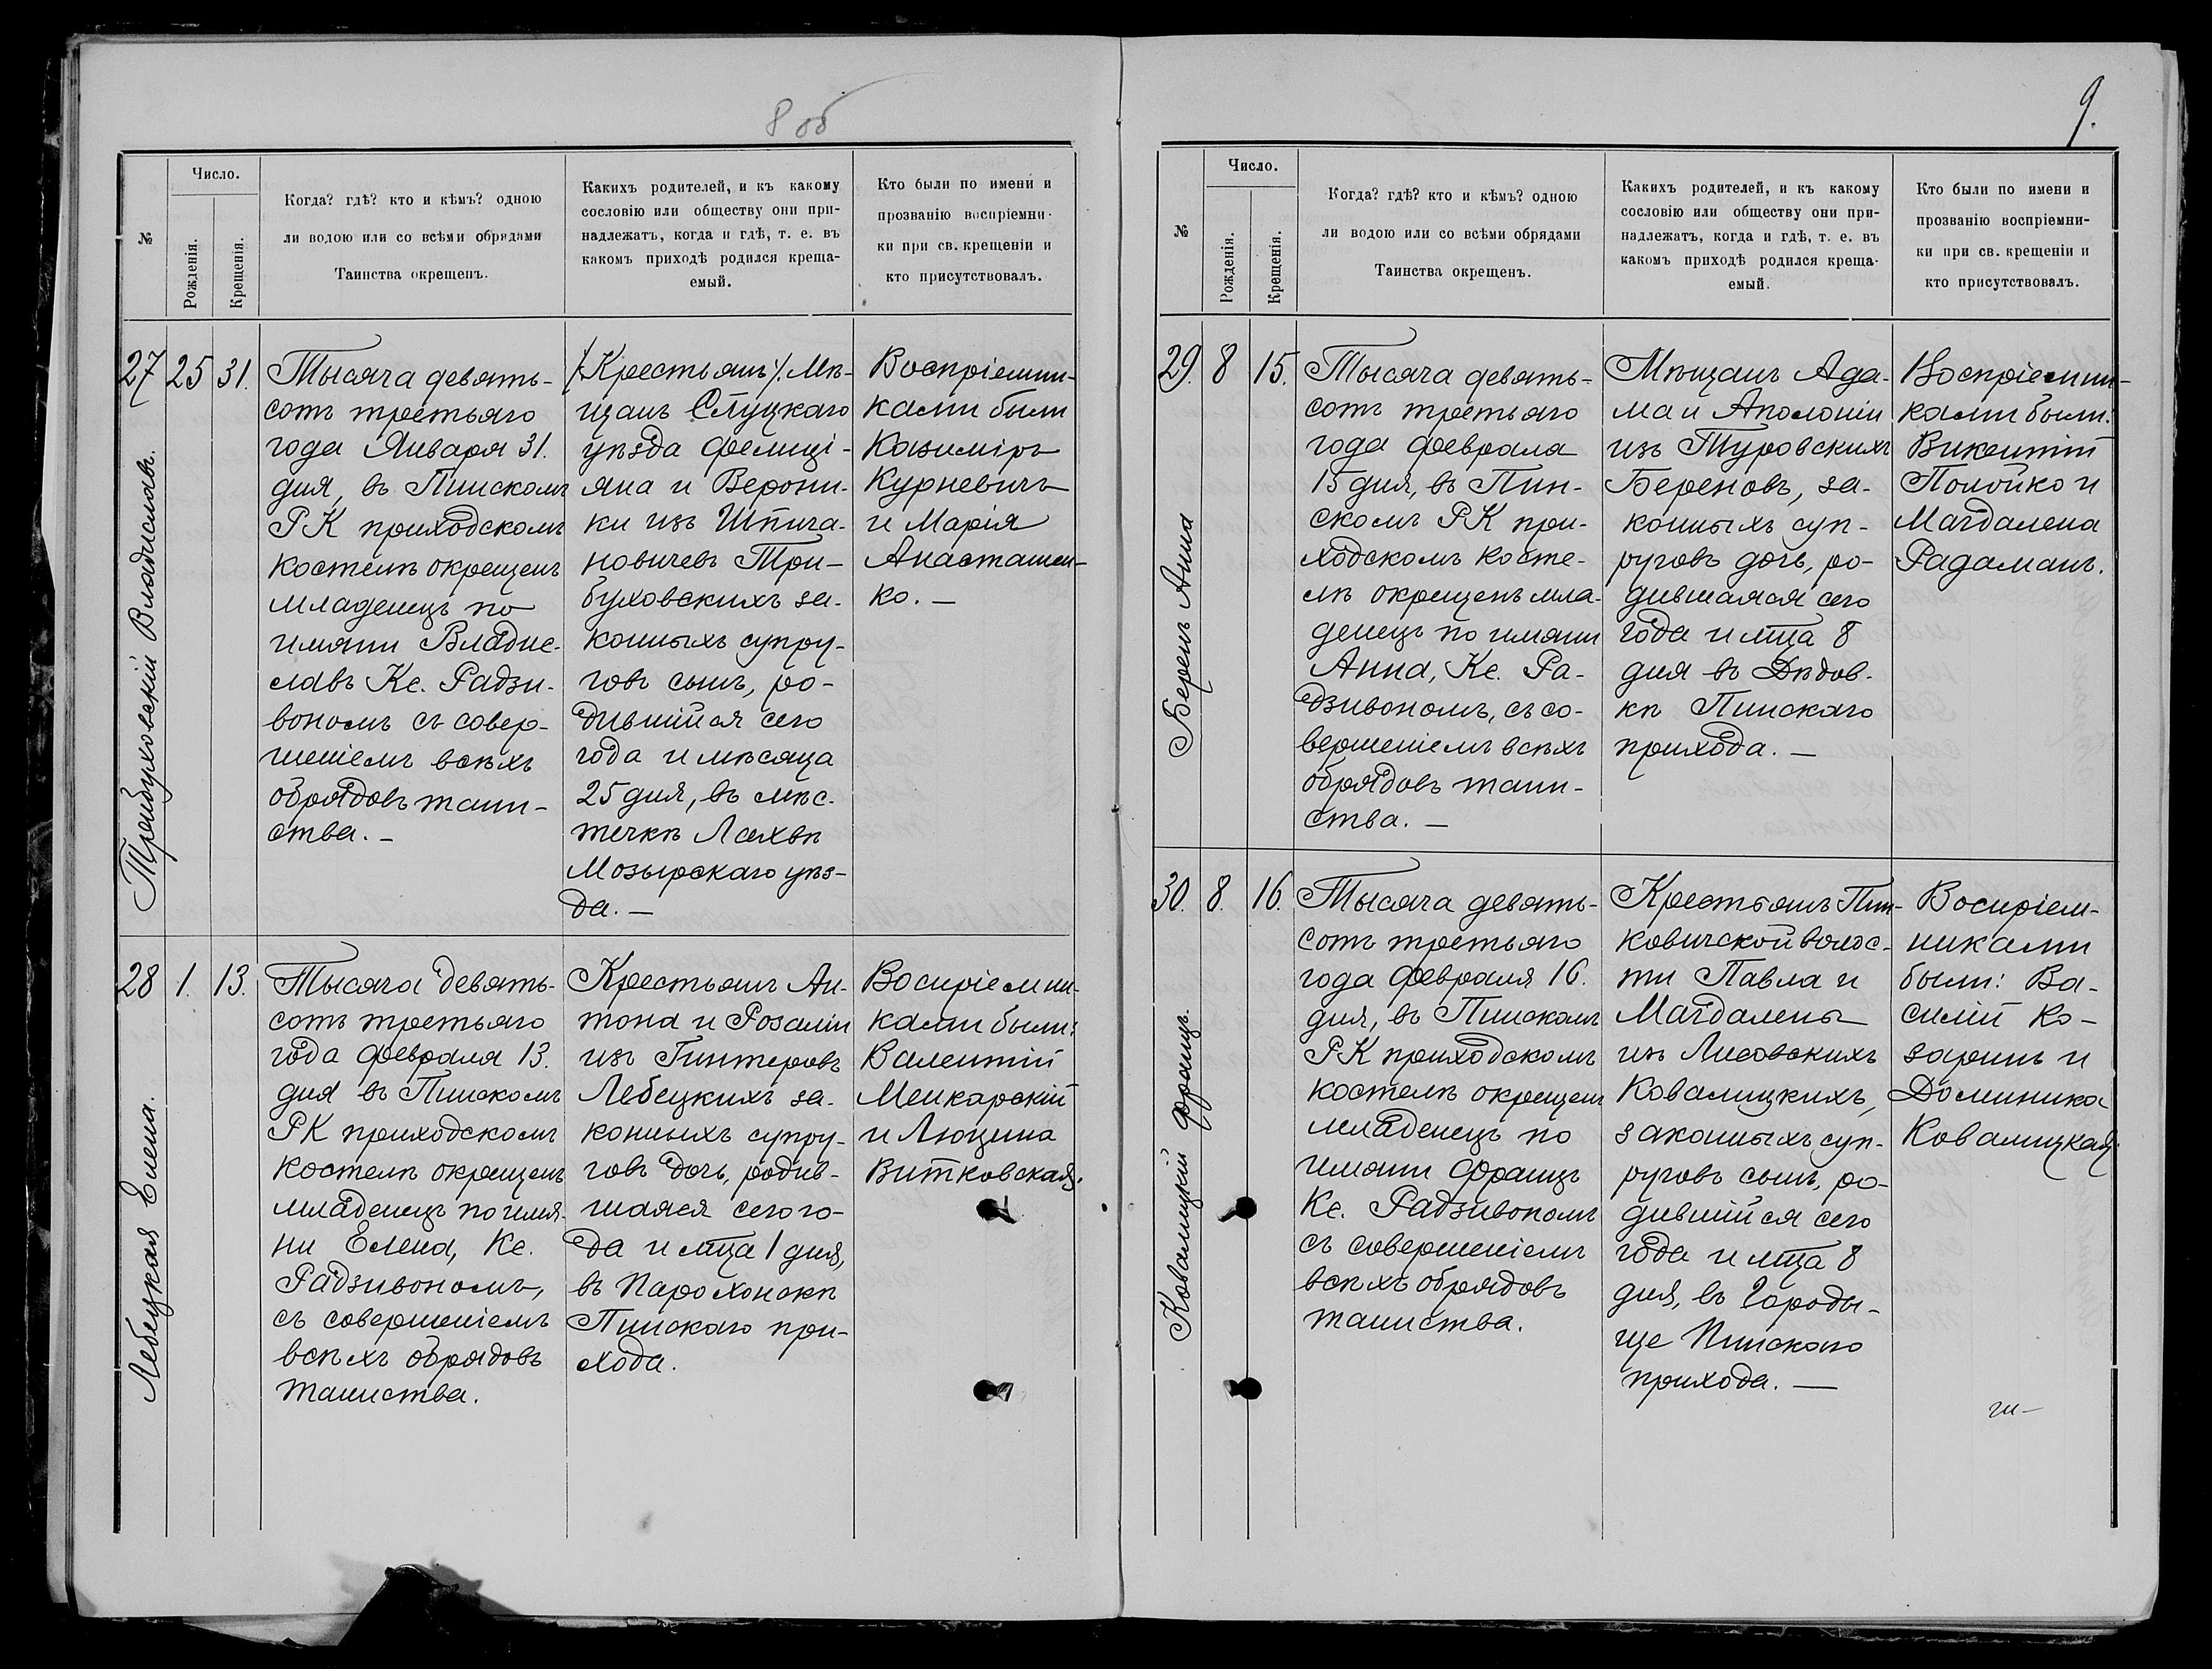 8 об
№
Число.
Рожденія.
Крещенія.
Когда? гдѣ? кто и кѣмъ? одною
ли водою или со всѣми обрядами
Таинства окрещенъ.
Какихъ родителей, и къ какому
сословію или обществу они при-
надлежатъ, когда и гдѣ, т. е. въ
какомъ приходѣ родился креща-
емый.
Кто были по имени и
прозванію воспріемни-
ки при св. крещеніи и
кто присутствовалъ.
27
Трибуховскій Владиславъ.
25
31.
Тысяча девять-
сотъ третьяго
года Января 31.
дня, въ Пинскомъ
РК приходскомъ
костелѣ окрещенъ
младенецъ по
имяни Владис-
лавъ Кс. Радзи-
вономъ съ совер-
шеніемъ всѣхъ
обрядовъ таин-
ства. –
/Крестьянъ/. Мѣ-
щанъ Слуцкаго
уѣзда Фелиці-
яна и Верони-
ки изъ Шпича-
новичевъ Три-
буховскихъ за-
конныхъ супру-
говъ сынъ, ро-
дившійся сего
года и мѣсяца
25 дня, въ мѣс-
течкѣ Лахвѣ
Мозырскаго уѣз-
да. –
Воспріемни-
ками были
Казиміръ
Курневичъ
и Марія
Анасташен-
ко. –
28
Лебецкая Елена.
1.
13.
Тысяча девять-
сотъ третьяго
года февраля 13.
дня въ Пинскомъ
РК приходскомъ
костелѣ окрещенъ
младенецъ по имя-
ни Елена, Кс.
Радзивономъ,
съ совершеніемъ
всѣхъ обрядовъ
таинства.
Крестьянъ Ан-
тона и Розаліи
изъ Гинтеровъ
Лебецкихъ за-
конныхъ супру-
говъ дочь, родив-
шаяся сего го-
да и мца 1 дня,
въ Парохонскѣ
Пинскаго при-
хода.
Воспріемни-
ками были:
Валентій
Менкарскій
и Люцина
Витковская.
9.
№
Число.
Рожденія.
Крещенія.
Когда? гдѣ? кто и кѣмъ? одною
ли водою или со всѣми обрядами
Таинства окрещенъ.
Какихъ родителей, и къ какому
сословію или обществу они при-
надлежатъ, когда и гдѣ, т. е. въ
какомъ приходѣ родился креща-
емый.
Кто были по имени и
прозванію воспріемни-
ки при св. крещеніи и
кто присутствовалъ.
29.
Беренъ Анна
8
15.
Тысяча девять-
сотъ третьяго
года февраля
15 дня, въ Пин-
скомъ РК при-
ходскомъ косте-
лѣ окрещенъ мла-
денецъ по имяни
Анна, Кс. Ра-
дзивономъ, съ со-
вершеніемъ всѣхъ
обрядовъ таин-
ства. –
Мѣщанъ Ада-
ма и Аполоніи
изъ Туровскихъ
Береновъ, за-
конныхъ суп-
руговъ дочь, ро-
дившаяся сего
года и мца 8
дня въ Дѣдов-
кѣ Пинскаго
прихода. –
Воспріемни-
ками были:
Викентій
Полойко и
Магдалена
Радаманъ.
30.
Ковалицкій Францъ.
8.
16.
Тысяча девять-
сотъ третьяго
года февраля 16.
дня, въ Пинскомъ
РК приходскомъ
костелѣ окрещенъ
младенецъ по
имяни Францъ
Кс. Радзивономъ
съ совершеніемъ
всѣхъ обрядовъ
таинства.
Крестьянъ Пин-
ковичской волос-
ти Павла и
Магдалены
изъ Лисовскихъ
Ковалицкихъ,
законныхъ суп-
руговъ сынъ, ро-
дившійся сего
года и мца 8
дня, въ Городы-
ще Пинскаго
прихода. –
Воспріем-
никами
были: Ва-
силій Ко-
заринъ и
Доминика
Ковалицкая.